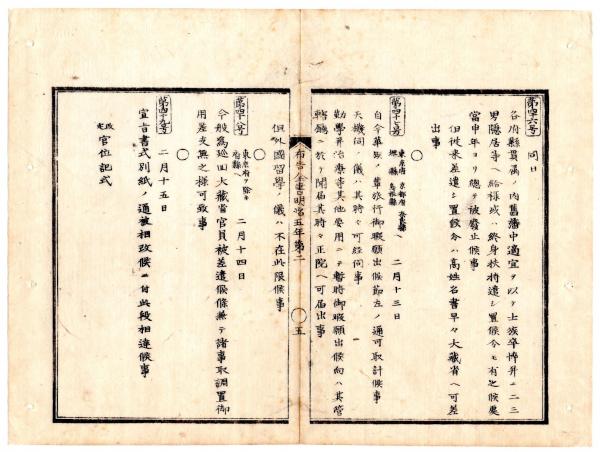 第四十六号 同日
各府縣貫属ノ内舊藩中適宜ヲ以テ士族卒悴并ニ二三
男隠居等ヘ給禄或ハ終身扶持遣シ置候今モ有之候処
當申年ヨリ總テ被廃止候事
但従来差遣シ置候分ハ高姓名書早々大蔵省ヘ可差
出事
〇
第四十七号 東京府 京都府
二月十三日
自今華族ノ輩旅行御暇願出候節左ノ通可取計候事
天機伺ノ儀ハ其時々可経伺事
勤學并治療等其他要用ニテ暫時御暇願出候向ハ其管
轄廳ニ於テ聞届其時々正院ヘ可届出事
布告全書明治五年第二
〇 五
但外國留學ノ儀ハ不在此限候事
〇
第四十八号 東京府ヲ除キ
各府縣
二月十四日
今般為巡回大蔵省官員被差遣候條兼テ諸事取調置御
用差支無之様可致事
〇
第四十九号 二月十五日
宣旨書式別紙ノ通被相改候ニ付此段相達候事
改定 官位記式